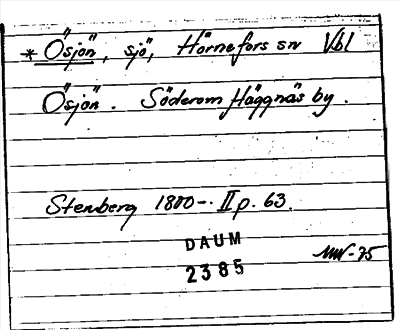 * Ösjön, sjö, Hörnefors sn Vbl
Ösjön. Söderom Häggnäs by.
Stenberg 1800-. II p. 63.
DAUM
2385
MW-75